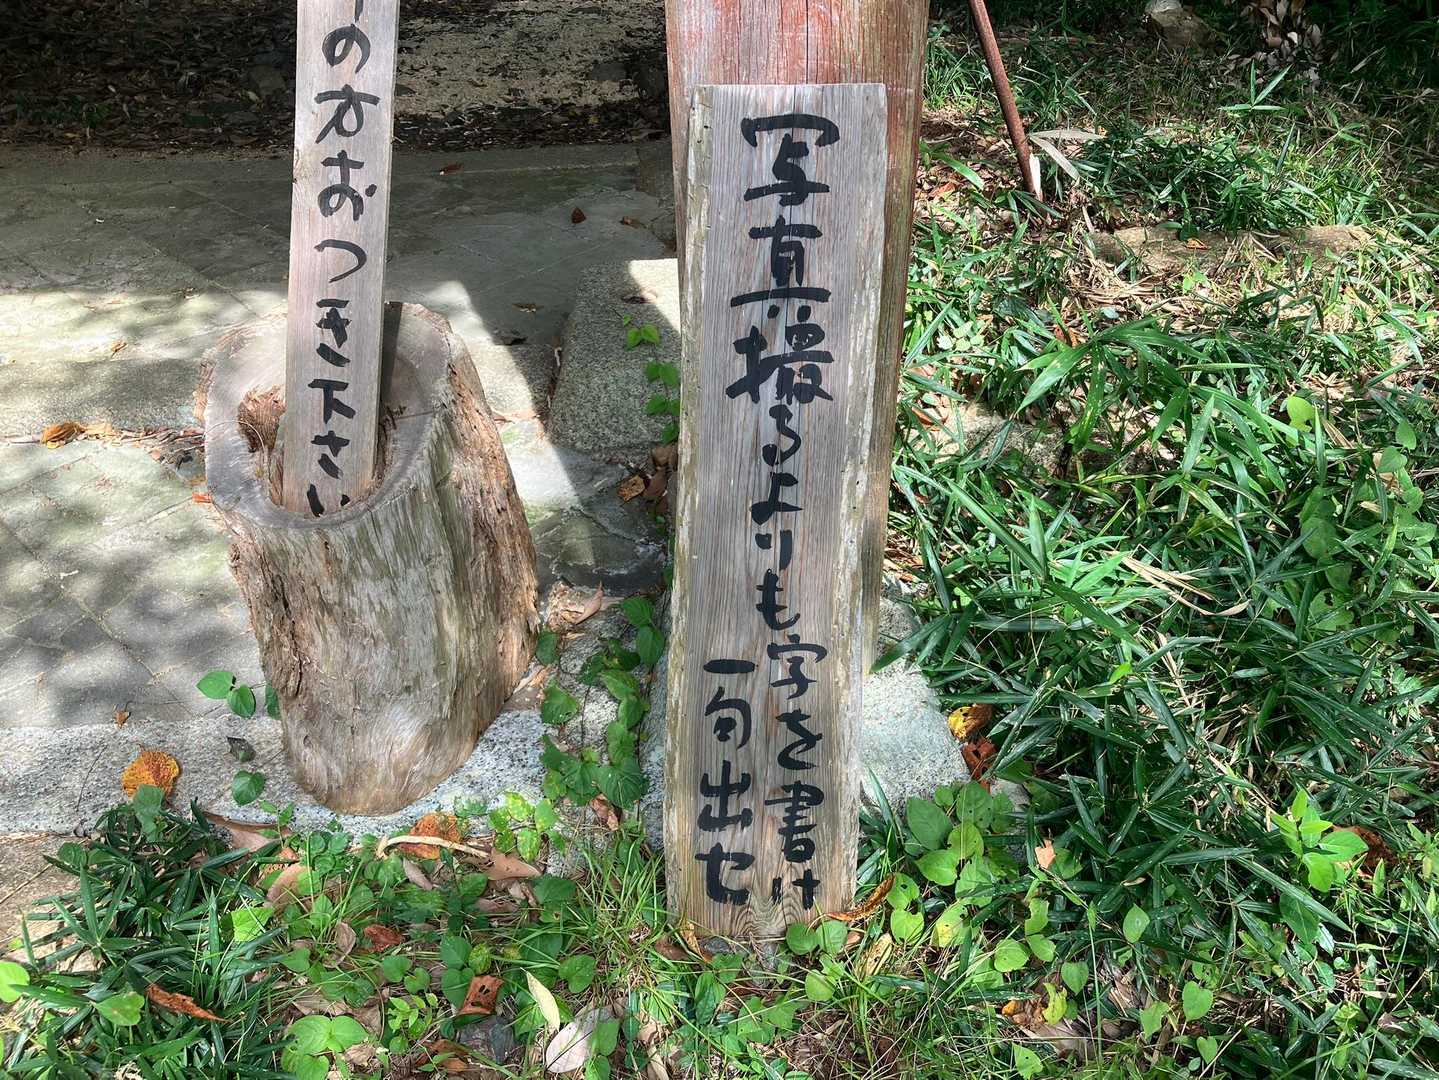 写真撮るよりも字を書け
一句出セ
の方おつき下さい